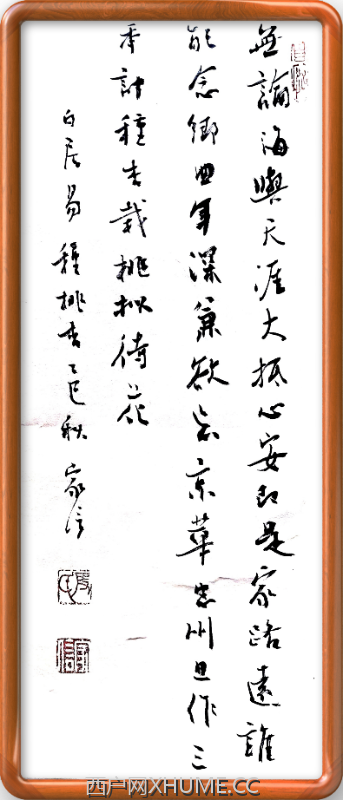 無論海與天涯大抵心安即是家路遠誰
能念鄉曲年深兼欲忘京華忠州且作三
年計種杏栽桃擬待花
白居易種桃杏乙巳秋家信
西户网XHUME.CC